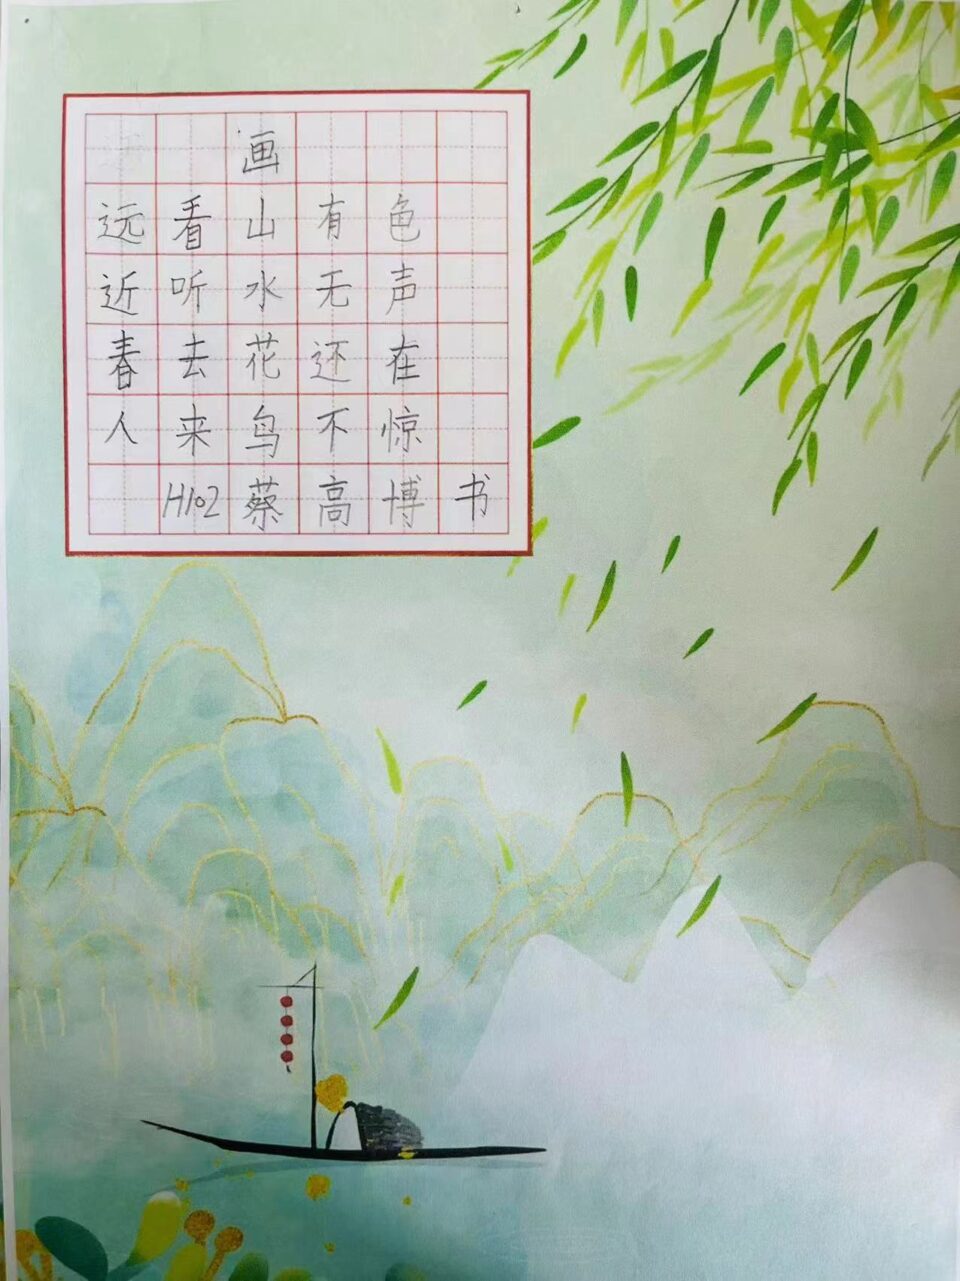 画
远看山有色
近听水无声
春去花还在
人来鸟不惊
H102蔡高博书